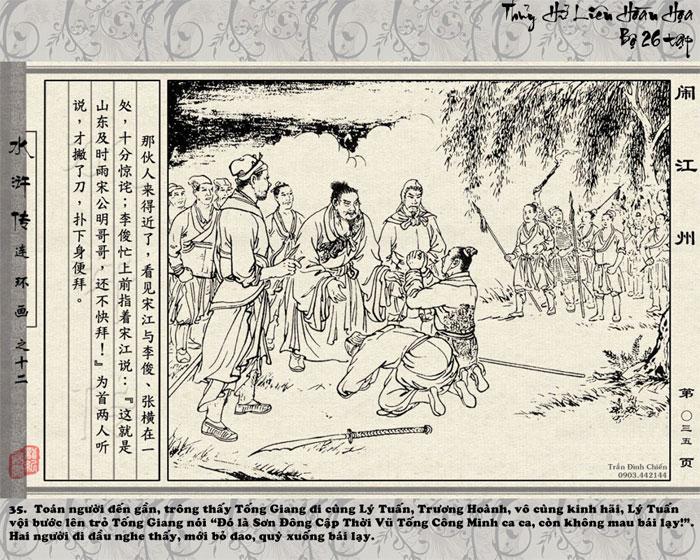 Thủy Hử Liên Hoàn Họa
Bộ 26 tập
闹江州
第〇三五页
那伙人来得近了，看见宋江与李俊、张横在一
处，十分惊诧；李俊忙上前指着宋江说：『这就是
山东及时雨宋公明哥哥，还不快拜！』为首两人听
说，才撇了刀，扑下身便拜。
水浒传连环画之十二
Trần Đình Chiến
0903.442144
35. Toán người đến gần, trông thấy Tống Giang đi cùng Lý Tuấn, Trương Hoành, vô cùng kinh hãi, Lý Tuấn
vội bước lên trỏ Tống Giang nói “Đó là Sơn Đông Cập Thời Vũ Tống Công Minh ca ca, còn không mau bái lạy!”.
Hai người đi đầu nghe thấy, mới bỏ đao, quỳ xuống bái lạy.